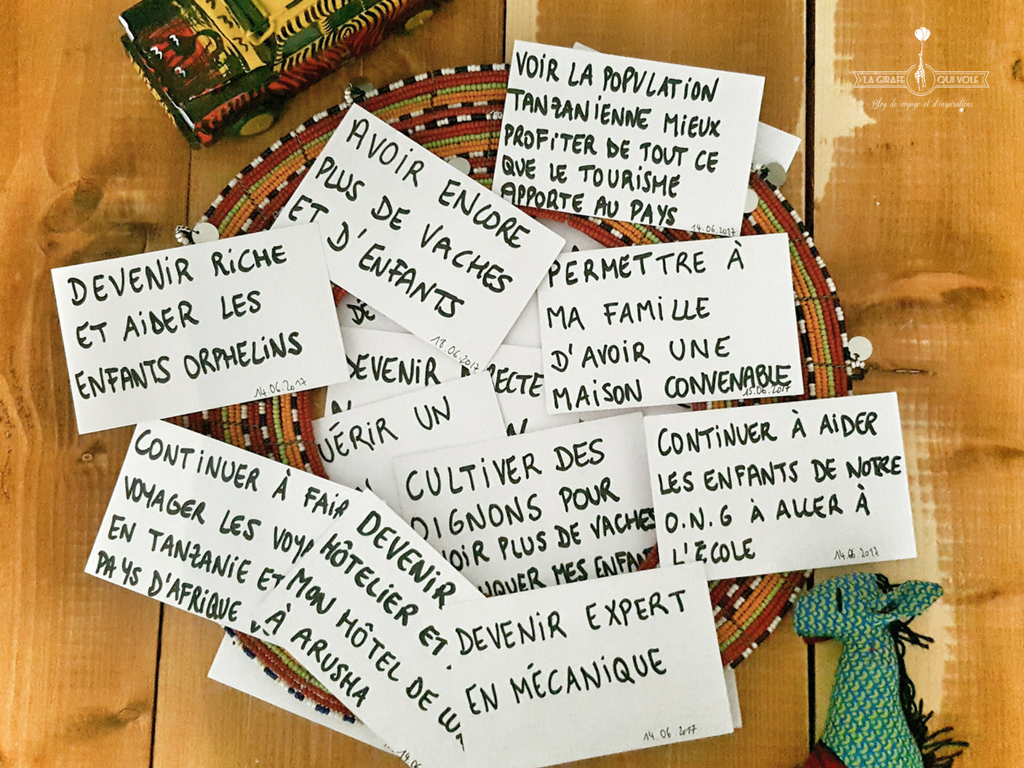 LA GIRAFE QUI VOLE
Blog de voyage et d'inspirations
VOIR LA POPULATION
TANZANIENNE MIEUX
PROFITER DE TOUT CE
QUE LE TOURISME
APPORTE AU PAYS
14.06.2017
AVOIR ENCORE
PLUS DE VACHES
ET D'ENFANTS
13.06.2017
DEVENIR RICHE
ET AIDER LES
ENFANTS ORPHELINS
14.06.2017
PERMETTRE À
MA FAMILLE
D'AVOIR UNE
MAISON CONVENABLE
15.06.2017
DE
DEVENIR
RECTE
N
UÉRIR UN
CONTINUER À AIDER
LES ENFANTS DE NOTRE
O.N.G À ALLER À
L'ÉCOLE
14.06.2017
CULTIVER DES
OIGNONS POUR
OIR PLUS DE VACHES
QUER MES ENFAN
CONTINUER À FAIR
VOYAGER LES VOY
EN TANZANIE ET
PAYS D'AFRIQUE
DEVENIR
HÔTELIER ET
MON HÔTEL DE LU
À ARUSHA
14
DEVENIR EXPERT
EN MÉCANIQUE
14.06.2017